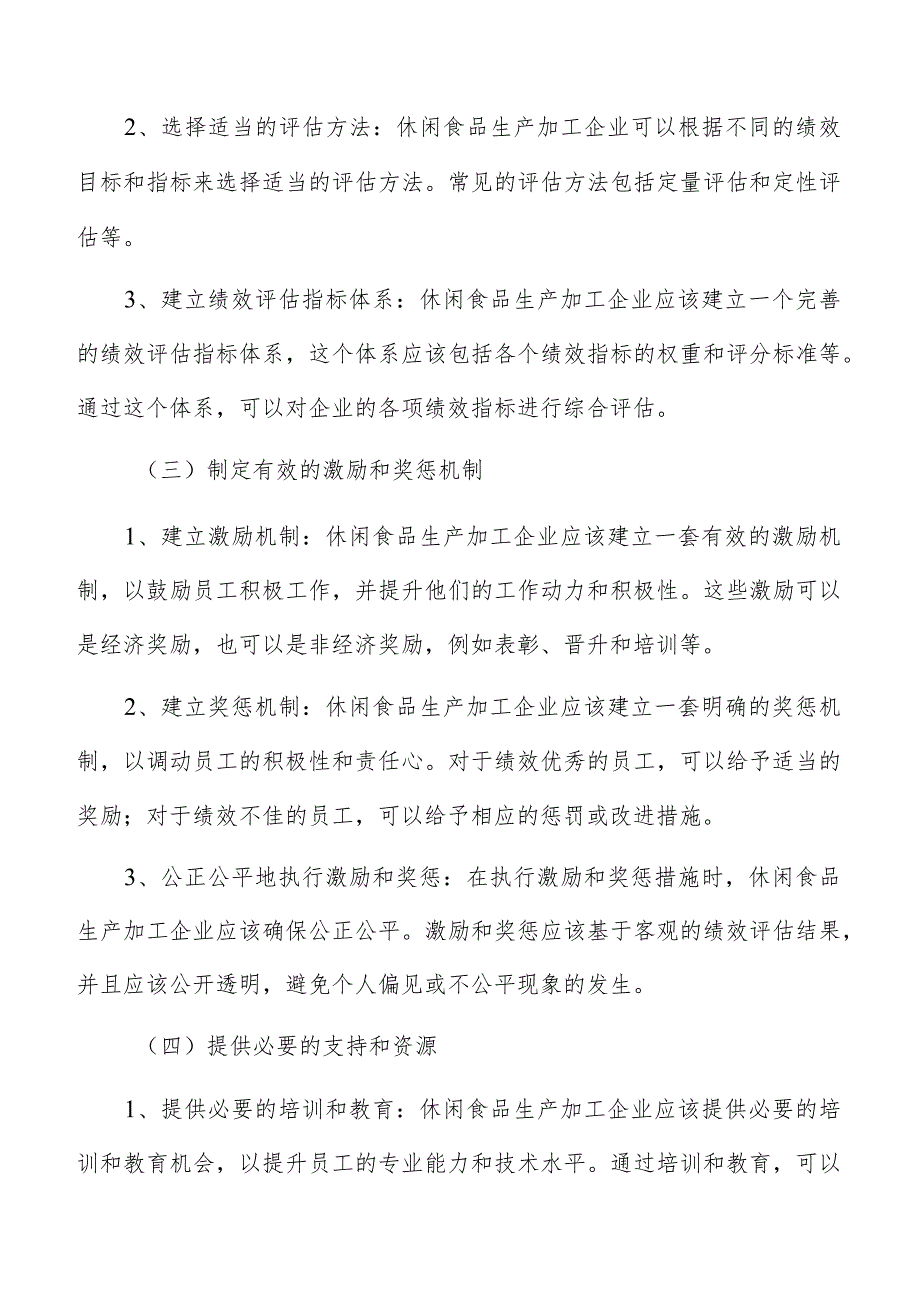 2、选择适当的评估方法：休闲食品生产加工企业可以根据不同的绩效
目标和指标来选择适当的评估方法。常见的评估方法包括定量评估和定性评
估等。
3、建立绩效评估指标体系：休闲食品生产加工企业应该建立一个完善
的绩效评估指标体系，这个体系应该包括各个绩效指标的权重和评分标准等。
通过这个体系，可以对企业的各项绩效指标进行综合评估。
（三）制定有效的激励和奖惩机制
1、建立激励机制：休闲食品生产加工企业应该建立一套有效的激励机
制，以鼓励员工积极工作，并提升他们的工作动力和积极性。这些激励可以
是经济奖励，也可以是非经济奖励，例如表彰、晋升和培训等。
2、建立奖惩机制：休闲食品生产加工企业应该建立一套明确的奖惩机
制，以调动员工的积极性和责任心。对于绩效优秀的员工，可以给予适当的
奖励；对于绩效不佳的员工，可以给予相应的惩罚或改进措施。
3、公正公平地执行激励和奖惩：在执行激励和奖惩措施时，休闲食品
生产加工企业应该确保公正公平。激励和奖惩应该基于客观的绩效评估结果，
并且应该公开透明，避免个人偏见或不公平现象的发生。
（四）提供必要的支持和资源
1、提供必要的培训和教育：休闲食品生产加工企业应该提供必要的培
训和教育机会，以提升员工的专业能力和技术水平。通过培训和教育，可以